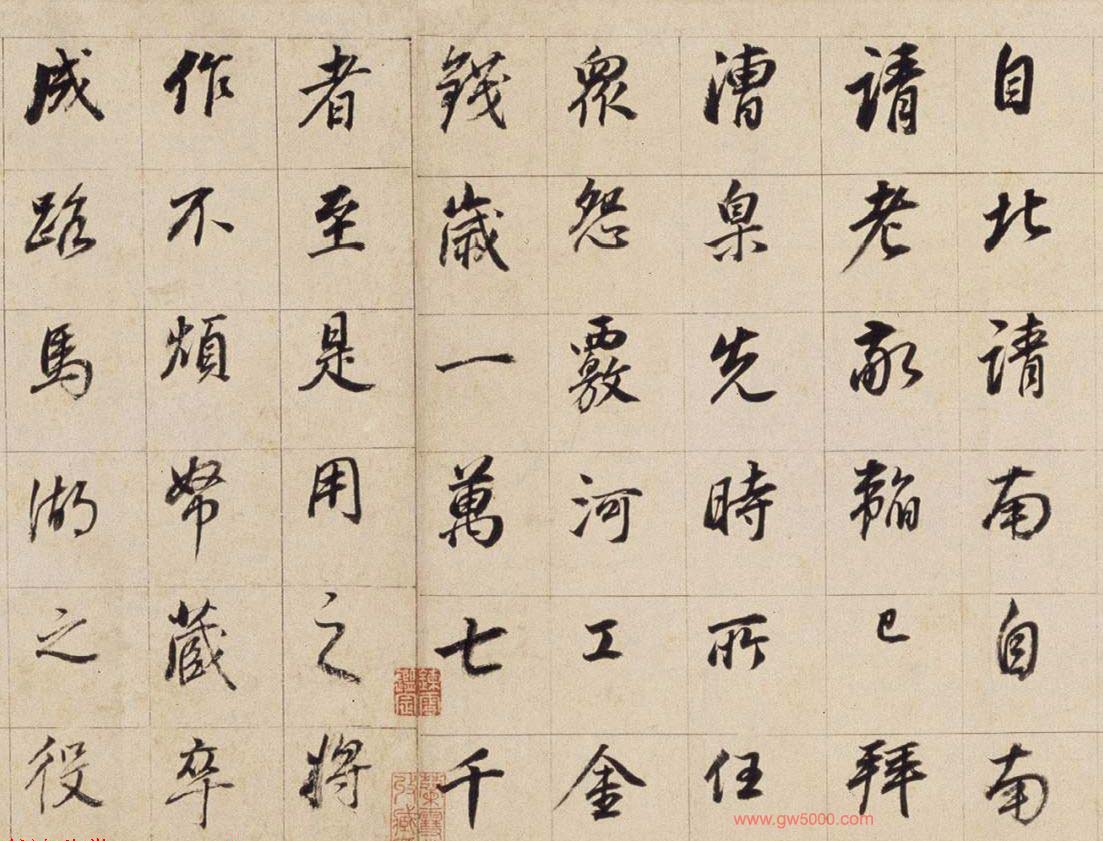 自北請南自南
請老敵韜已拜
漕臬先時所任
衆怨覈河工金
錢歲一萬七千
者至是用之將
作不煩帑藏卒
成跲馬湖之役
www.gw5000.com